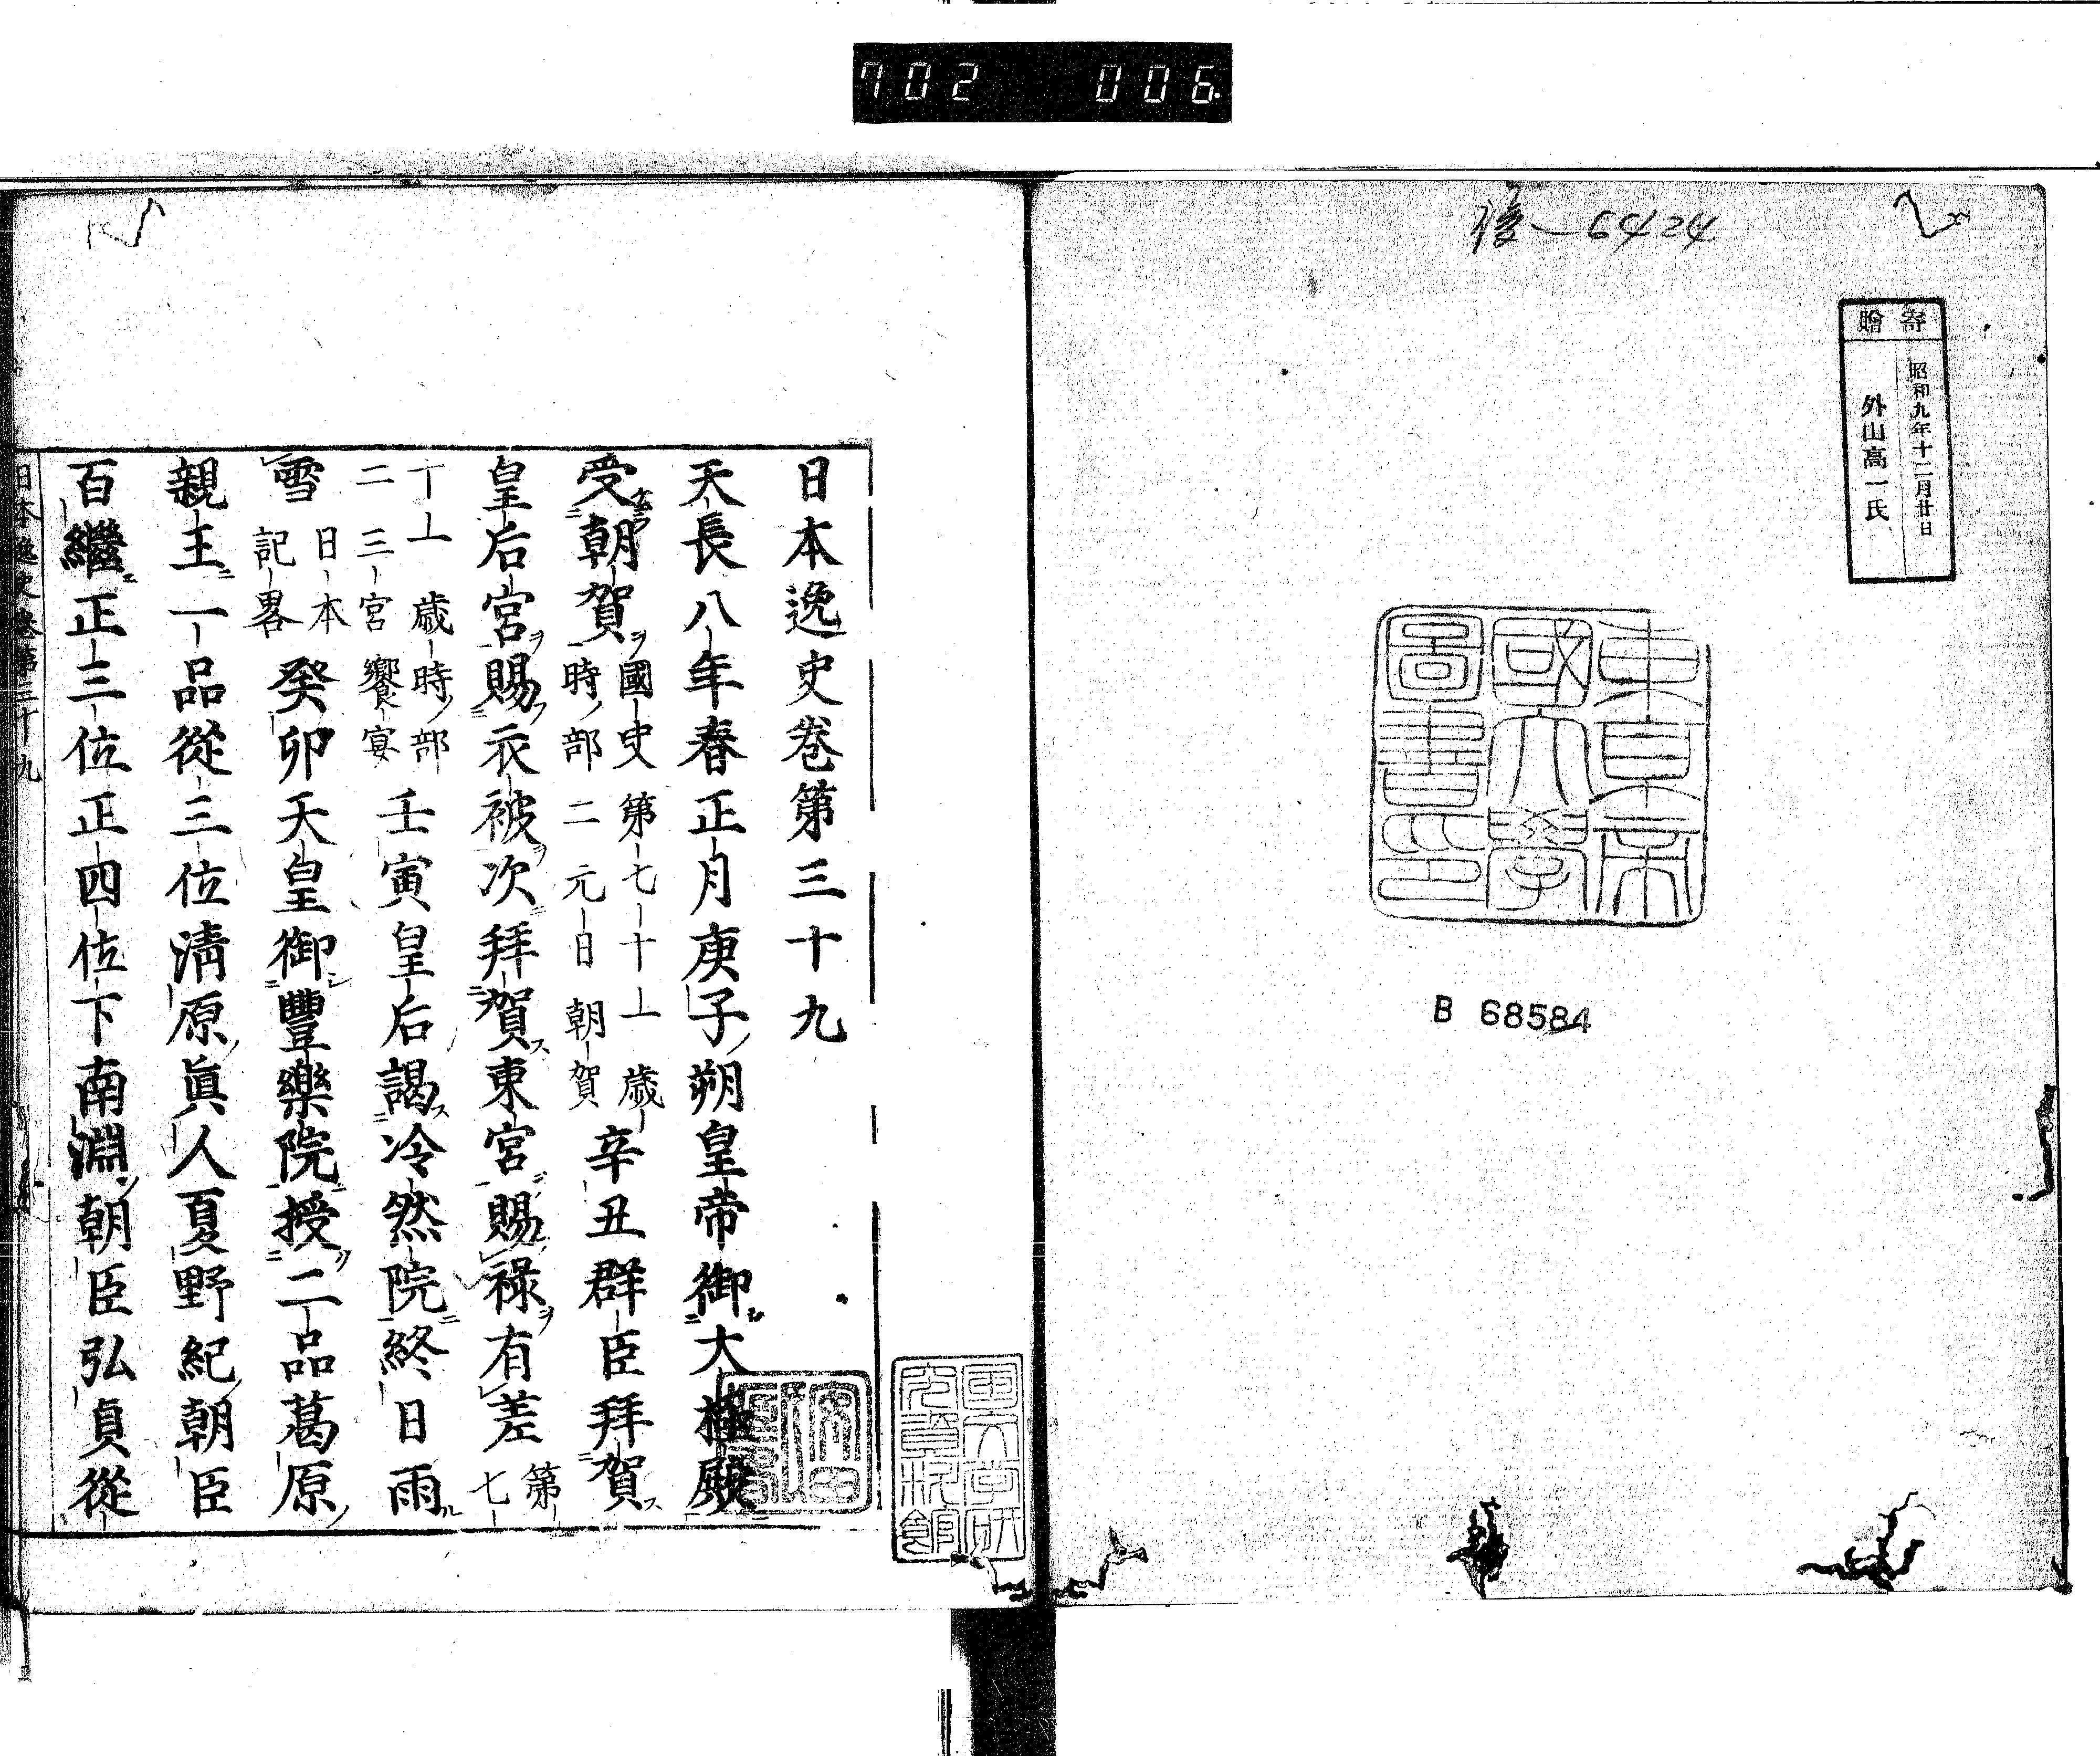 702 006
後-6424
寄贈
昭和九年十二月廿日
外山高一氏
東京帝
國大學
圖書印
B 68584
日本逸史卷第三十九
天長八年春正月庚子朔皇帝御大極殿
受朝賀國史第七十一歳時部二元日朝賀辛丑群臣拜賀
皇后宮賜衣被次拜賀東宮賜祿有差第七
十一歳時部二二三宮饗宴壬寅皇后謁冷然院終日雨
雪日本記畧癸卯天皇御豐樂院授二品葛原
親王一品從三位清原眞人夏野紀朝臣
百繼正三位正四位下南淵朝臣弘貞從
日本逸史卷第三十九